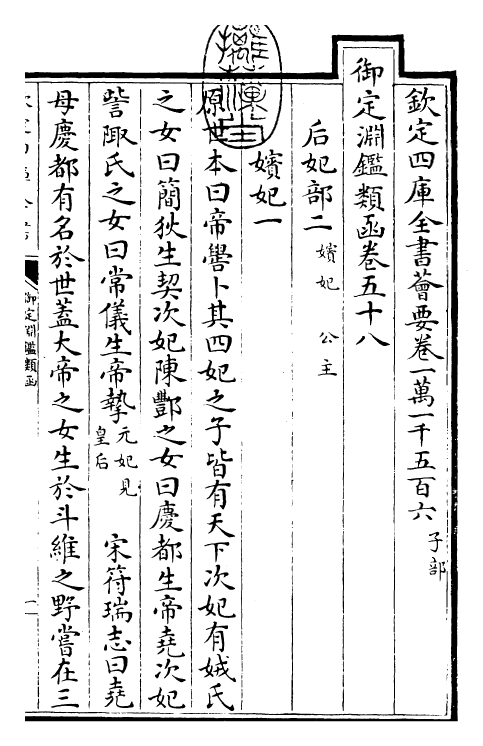 欽定四庫全書薈要卷一萬一千五百六 子部
御定淵鑑類函卷五十八
后妃部二 嬪妃 公主
嬪妃一
原世本曰帝嚳卜其四妃之子皆有天下次妃有娀氏
之女曰簡狄生契次妃陳酆之女曰慶都生帝堯次妃
訾陬氏之女曰常儀生帝摯 元妃見皇后 宋符瑞志曰堯
母慶都有名於世蓋大帝之女生於斗維之野嘗在三
御定淵鑑類函